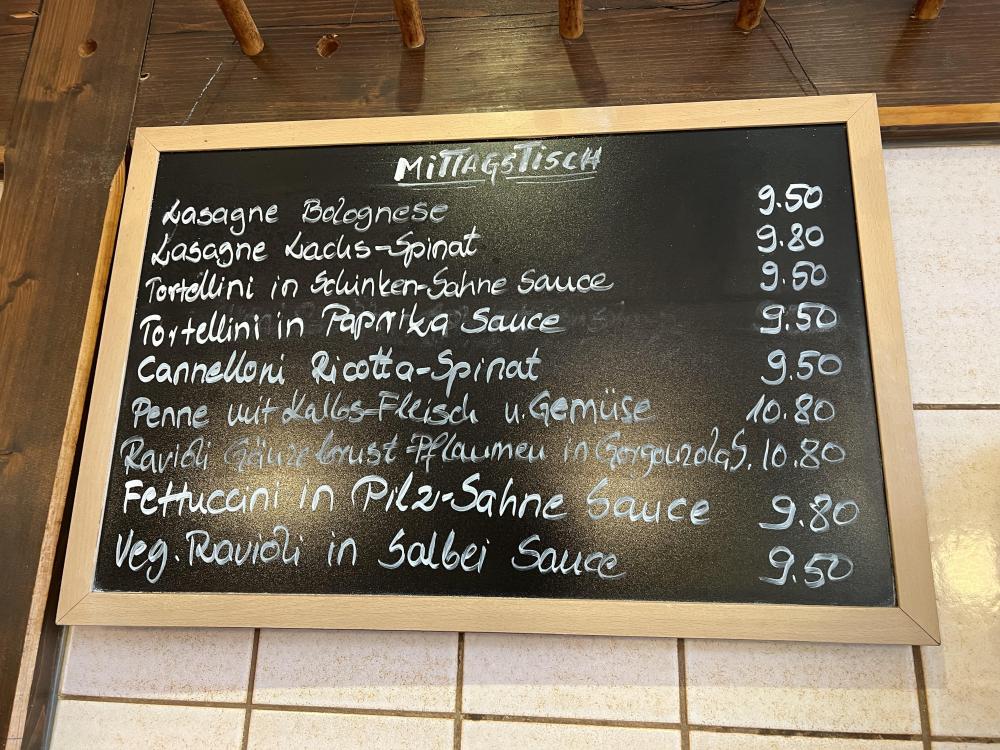 MITTAGSTISCH
Lasagne Bolognese 9.50
Lasagne Lachs-Spinat 9.80
Tortellini in Schinken-Sahne Sauce 9.50
Tortellini in Paprika Sauce 9.50
Cannelloni Ricotta-Spinat 9.50
Penne mit Kalbs-Fleisch u. Gemüse 10.80
Ravioli Gänsebrust-Pflaumen in Gorgonzola S. 10.80
Fettuccini in Pilz-Sahne Sauce 9.80
Veg. Ravioli in Salbei Sauce 9.50